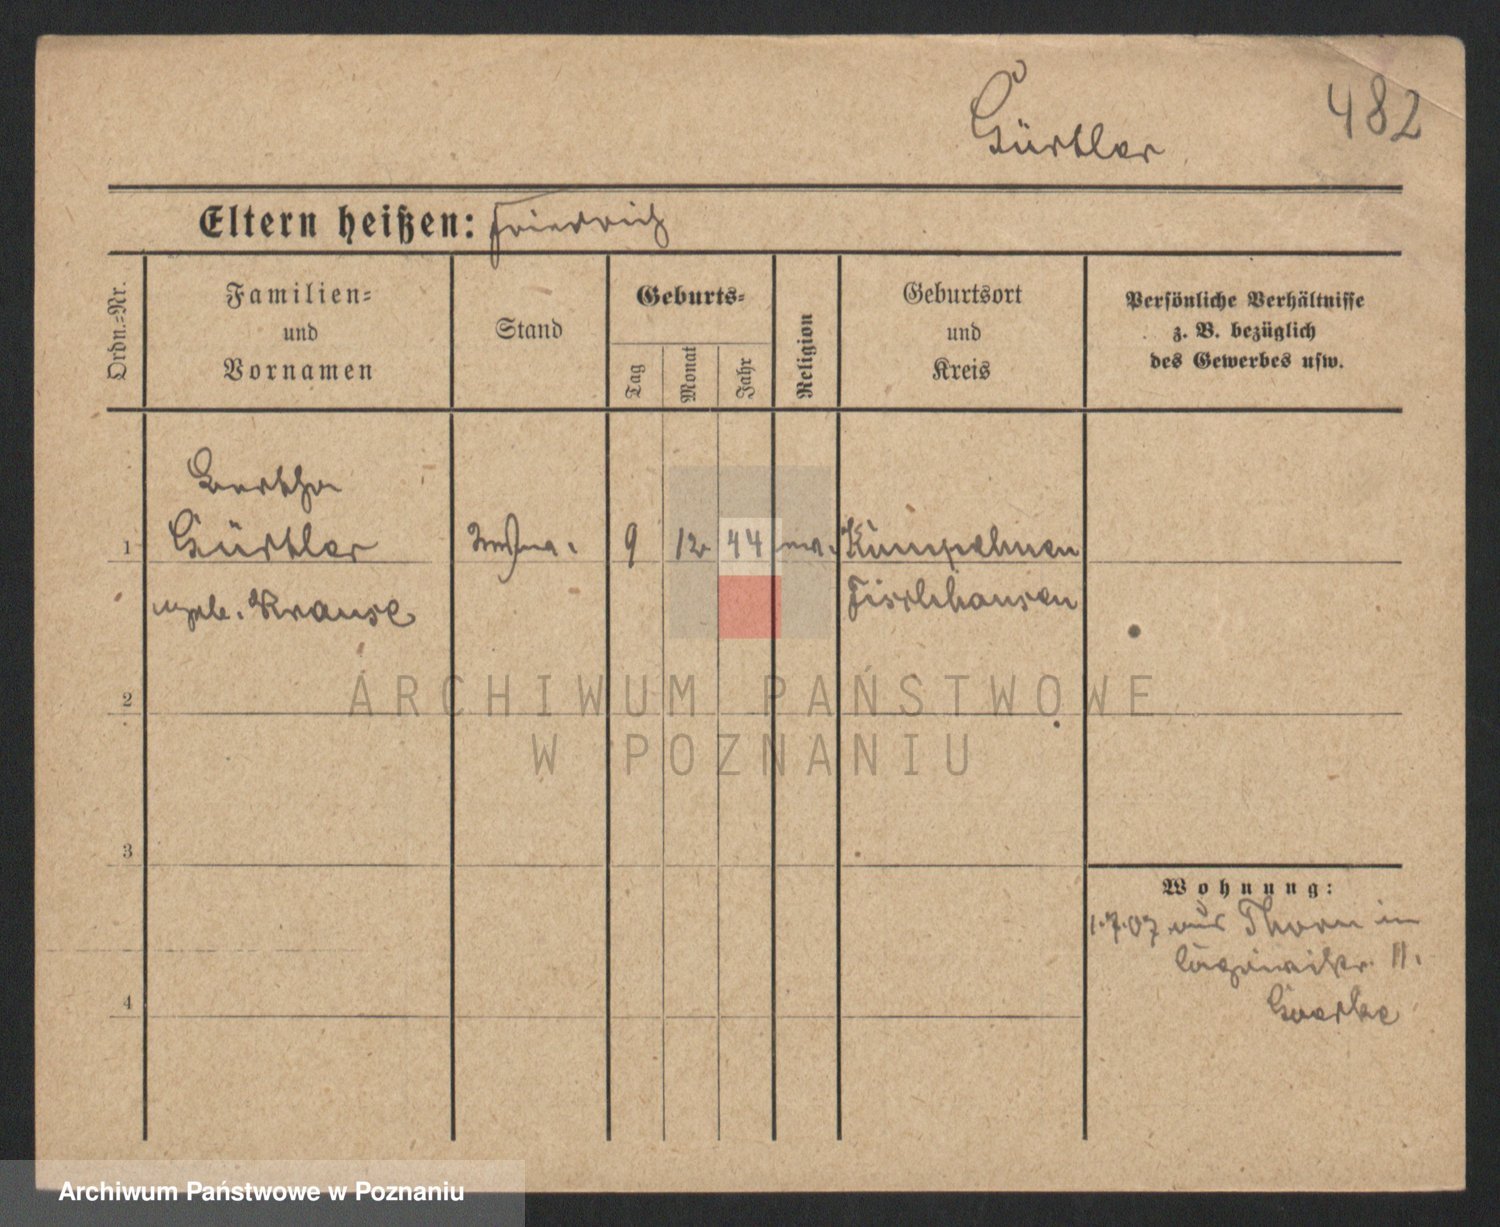 482
Gürtler
Eltern heißen: Friedrich
Ordn.-Nr.
Familien-
und
Vornamen
Stand
Geburts-
Tag
Monat
Jahr
Religion
Geburtsort
und
Kreis
Persönliche Verhältnisse
z. B. bezüglich
des Gewerbes usw.
Bertha
1 Gürtler 9 12 44 Kumpehnen
geb. Krause Fischhausen
2
ARCHIWUM PAŃSTWOWE
W POZNANIU
3
Wohnung:
1.7.07 aus Thorn in
11.
4
Archiwum Państwowe w Poznaniu